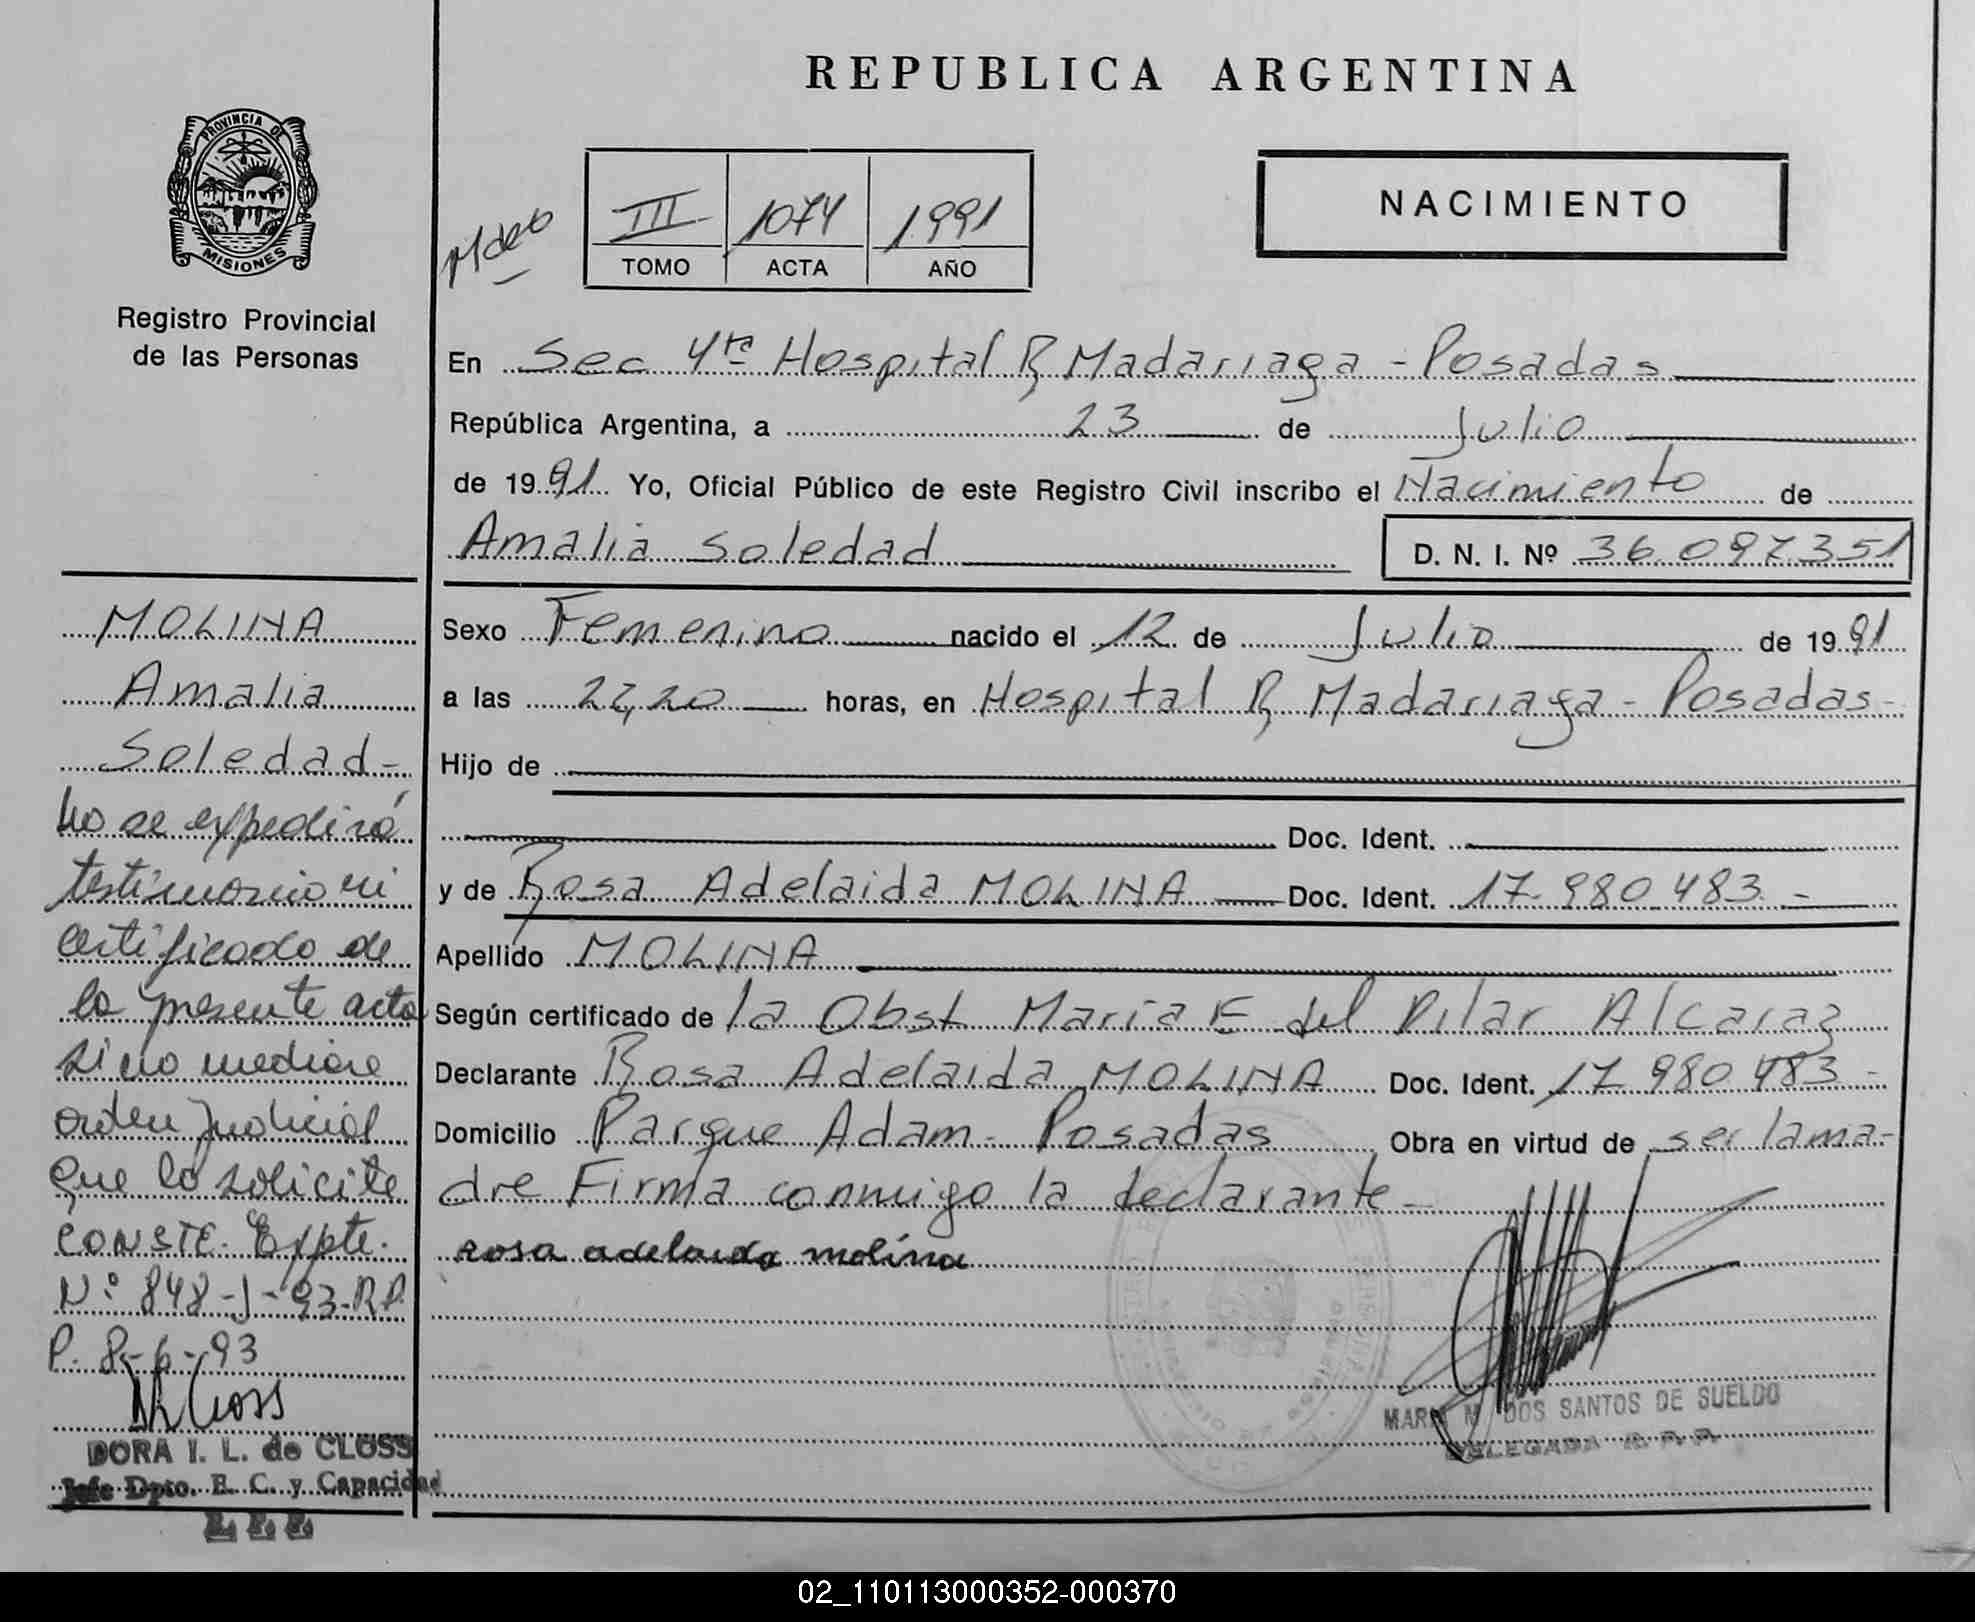 REPUBLICA ARGENTINA
PROVINCIA DE
MISIONES
Registro Provincial
de las Personas
NACIMIENTO
III 1074 1991
TOMO ACTA AÑO
En Sec 4ta Hospital R. Madariaga - Posadas
República Argentina, a 23 de Julio
de 1991 Yo, Oficial Público de este Registro Civil inscribo el Nacimiento de
Amalia Soledad D. N. I. Nº 36.097.351
Sexo Femenino nacido el 12 de Julio de 1991
a las 22,20 horas, en Hospital R. Madariaga - Posadas -
Hijo de
Doc. Ident.
y de Rosa Adelaida MOLINA Doc. Ident. 17.980.483 -
Apellido MOLINA
Según certificado de la Obst Maria E del Pilar Alcaraz
Declarante Rosa Adelaida MOLINA Doc. Ident. 17.980.483 -
Domicilio Parque Adam - Posadas Obra en virtud de ser la ma-
dre Firma conmigo la declarante -
rosa adelaida molina
MARIA M DOS SANTOS DE SUELDO
DELEGADA R.P.P.
MOLINA
Amalia
Soledad -
No se expedirá
testimonio ni
certificado de
la presente acta
si no mediare
orden judicial
que lo solicite
CONSTE. Expte.
Nº 848-J-93-RP
P. 8-6-93
DORA I. L. de CLOSS
Jefe Dpto. E. C. y Capacidad
02_110113000352-000370